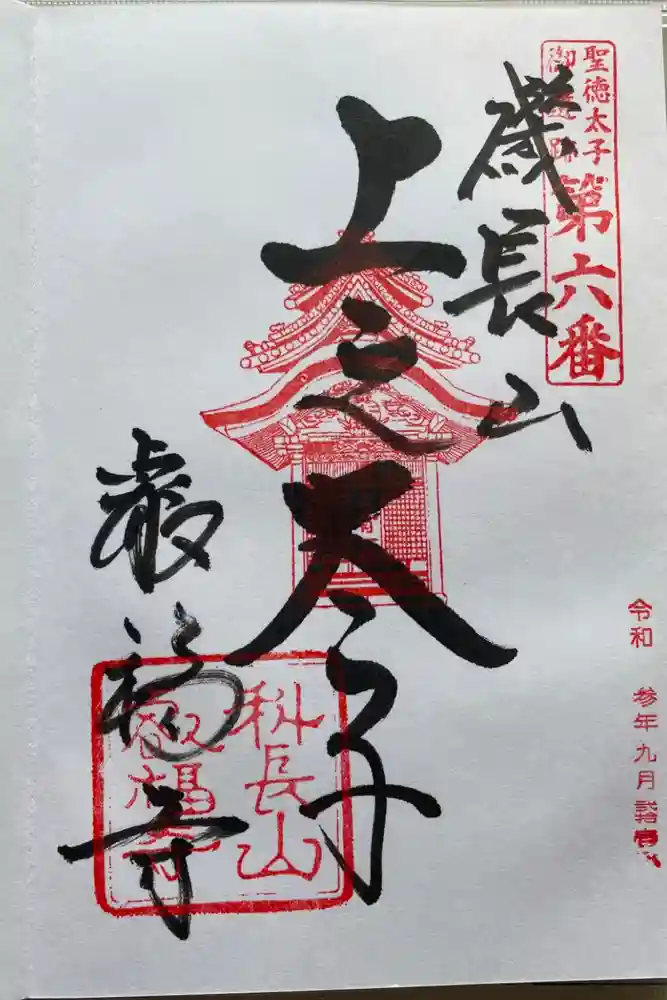 聖徳太子
御遺跡
第六番
磯長山
上之太子
叡福寺
科長山
叡福寺
令和 参年九月